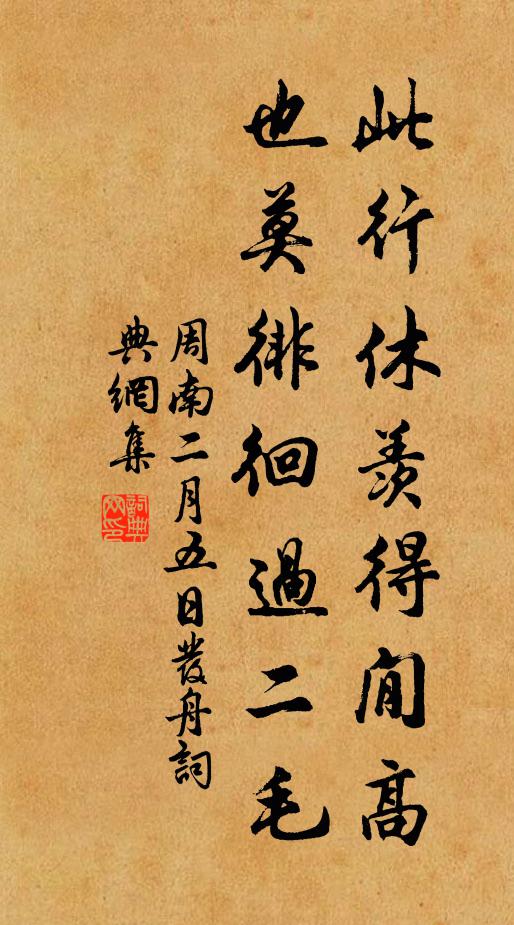 此行休羨得閒高
也莫徘徊過二毛
周南二月五日發舟詞
典網集
詞典網印